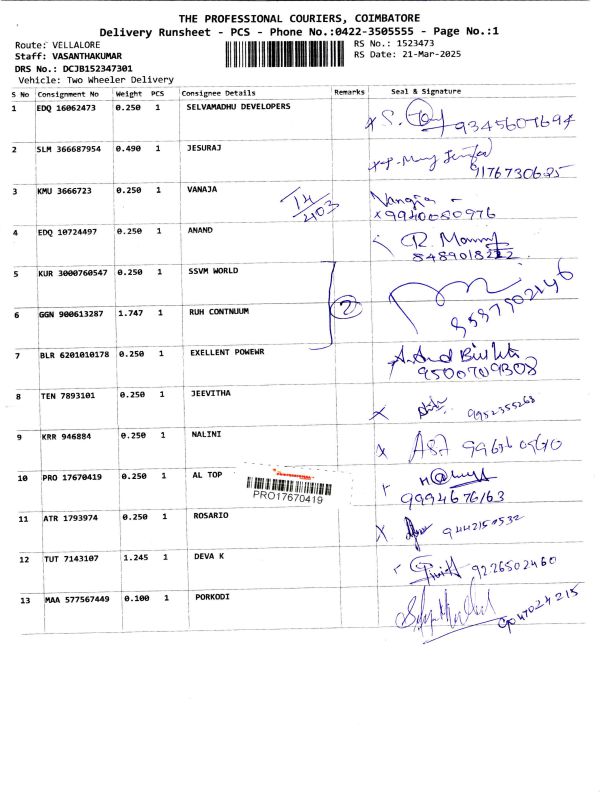 THE PROFESSIONAL COURIERS, COIMBATORE
Delivery Runsheet - PCS - Phone No.:0422-3505555 - Page No.:1
Route: VELLALORE RS No.: 1523473
Staff: VASANTHAKUMAR RS Date: 21-Mar-2025
DRS No.: DCJB152347301
Vehicle: Two Wheeler Delivery
S No Consignment No Weight PCS Consignee Details Remarks Seal & Signature
1 EDQ 16062473 0.250 1 SELVAMADHU DEVELOPERS
x S. 9345607694
2 SLM 366687954 0.490 1 JESURAJ
9176730625
3 KMU 3666723 0.250 1 VANAJA 14/403 Vangia
x 9940050976
4 EDQ 10724497 0.250 1 ANAND R.
8489018222
5 KUR 3000760547 0.250 1 SSVM WORLD
6 GGN 900613287 1.747 1 RUH CONTNUUM 2
7 BLR 6201010178 0.250 1 EXELLENT POWEWR
9500709308
8 TEN 7893101 0.250 1 JEEVITHA
x 9952355268
9 KRR 946884 0.250 1 NALINI x
10 PRO 17670419 0.250 1 AL TOP
PRO17670419
9994676163
11 ATR 1793974 0.250 1 ROSARIO
x 9442150532
12 TUT 7143107 1.245 1 DEVA K
9226502460
13 MAA 577567449 0.100 1 PORKODI